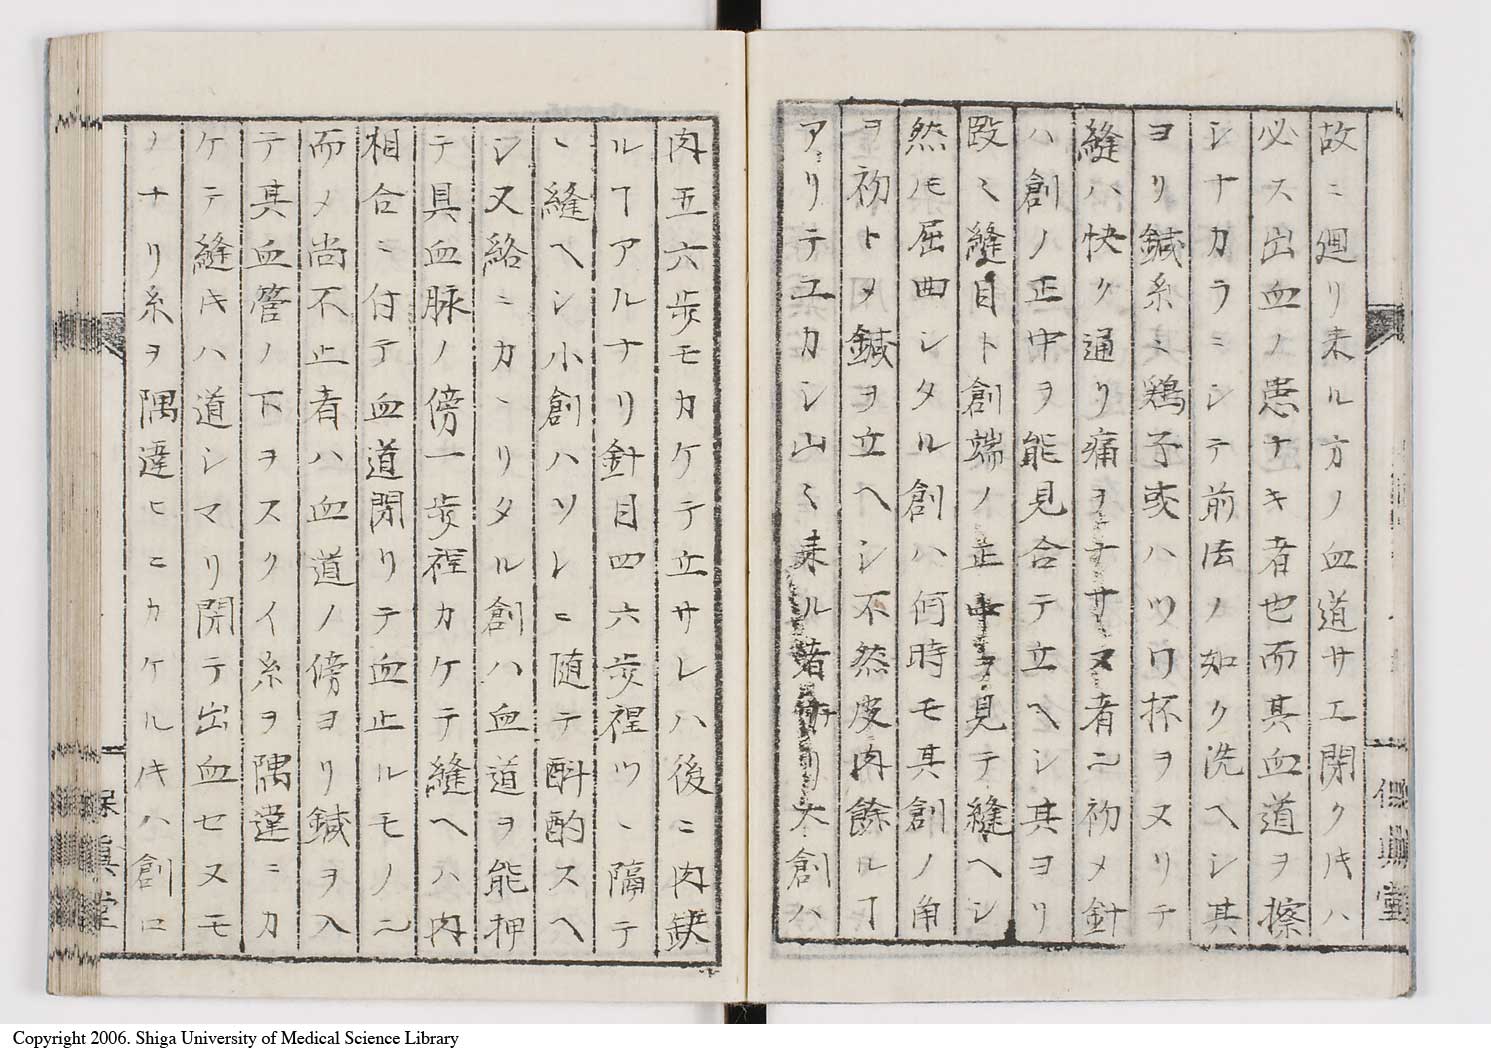 故ニ廻リ来ル方ノ血道サエ閉クㇵ
必ス出血ノ患ナキ者也而其血道ヲ擦
シナカラミシテ前法ノ如ク洗ヘシ其
ヨリ鍼糸ミ鶏子或ハツワ杯ヲヌリテ
縫ハ快ク通リ痛ヲナサヌ者ニ初メ針
ハ創ノ正中ヲ能見合テ立ヘシ其ヨリ
段ミ縫目ト創端ノ正中ヲ見テ縫ヘシ
然ㇳモ屈曲シタル創ハ何時モ其創ノ角
ヲ初トヲ鍼ヲ立ヘシ不然皮肉餘ルヿ
アリテユカシ山ミ来ル者有リ大創ハ
肉五六歩モカケテ立サレハ後ニ肉鈌
ルヿアルナリ針目四六歩程ツヽ隔テ
ヽ縫ヘシ小創ハソレニ随テ斟酌スヘ
シ又絡ニカヽリタル創ハ血道ヲ能押
テ具血脉ノ傍一歩程カケテ縫ヘハ肉
相合ニ付テ血道閉リテ血止ルモノ也
而メ尚不止者ハ血道ノ傍ヨリ鍼ヲ入
テ其血管ノ下ヲスクイ糸ヲ隅違ニカ
ケテ縫キハ道シマリ閉テ出血セヌモ
ノナリ糸ヲ隅違ヒニカケルキハ創口
保真堂
保真堂
Copyright 2006. Shiga University of Medical Science Library